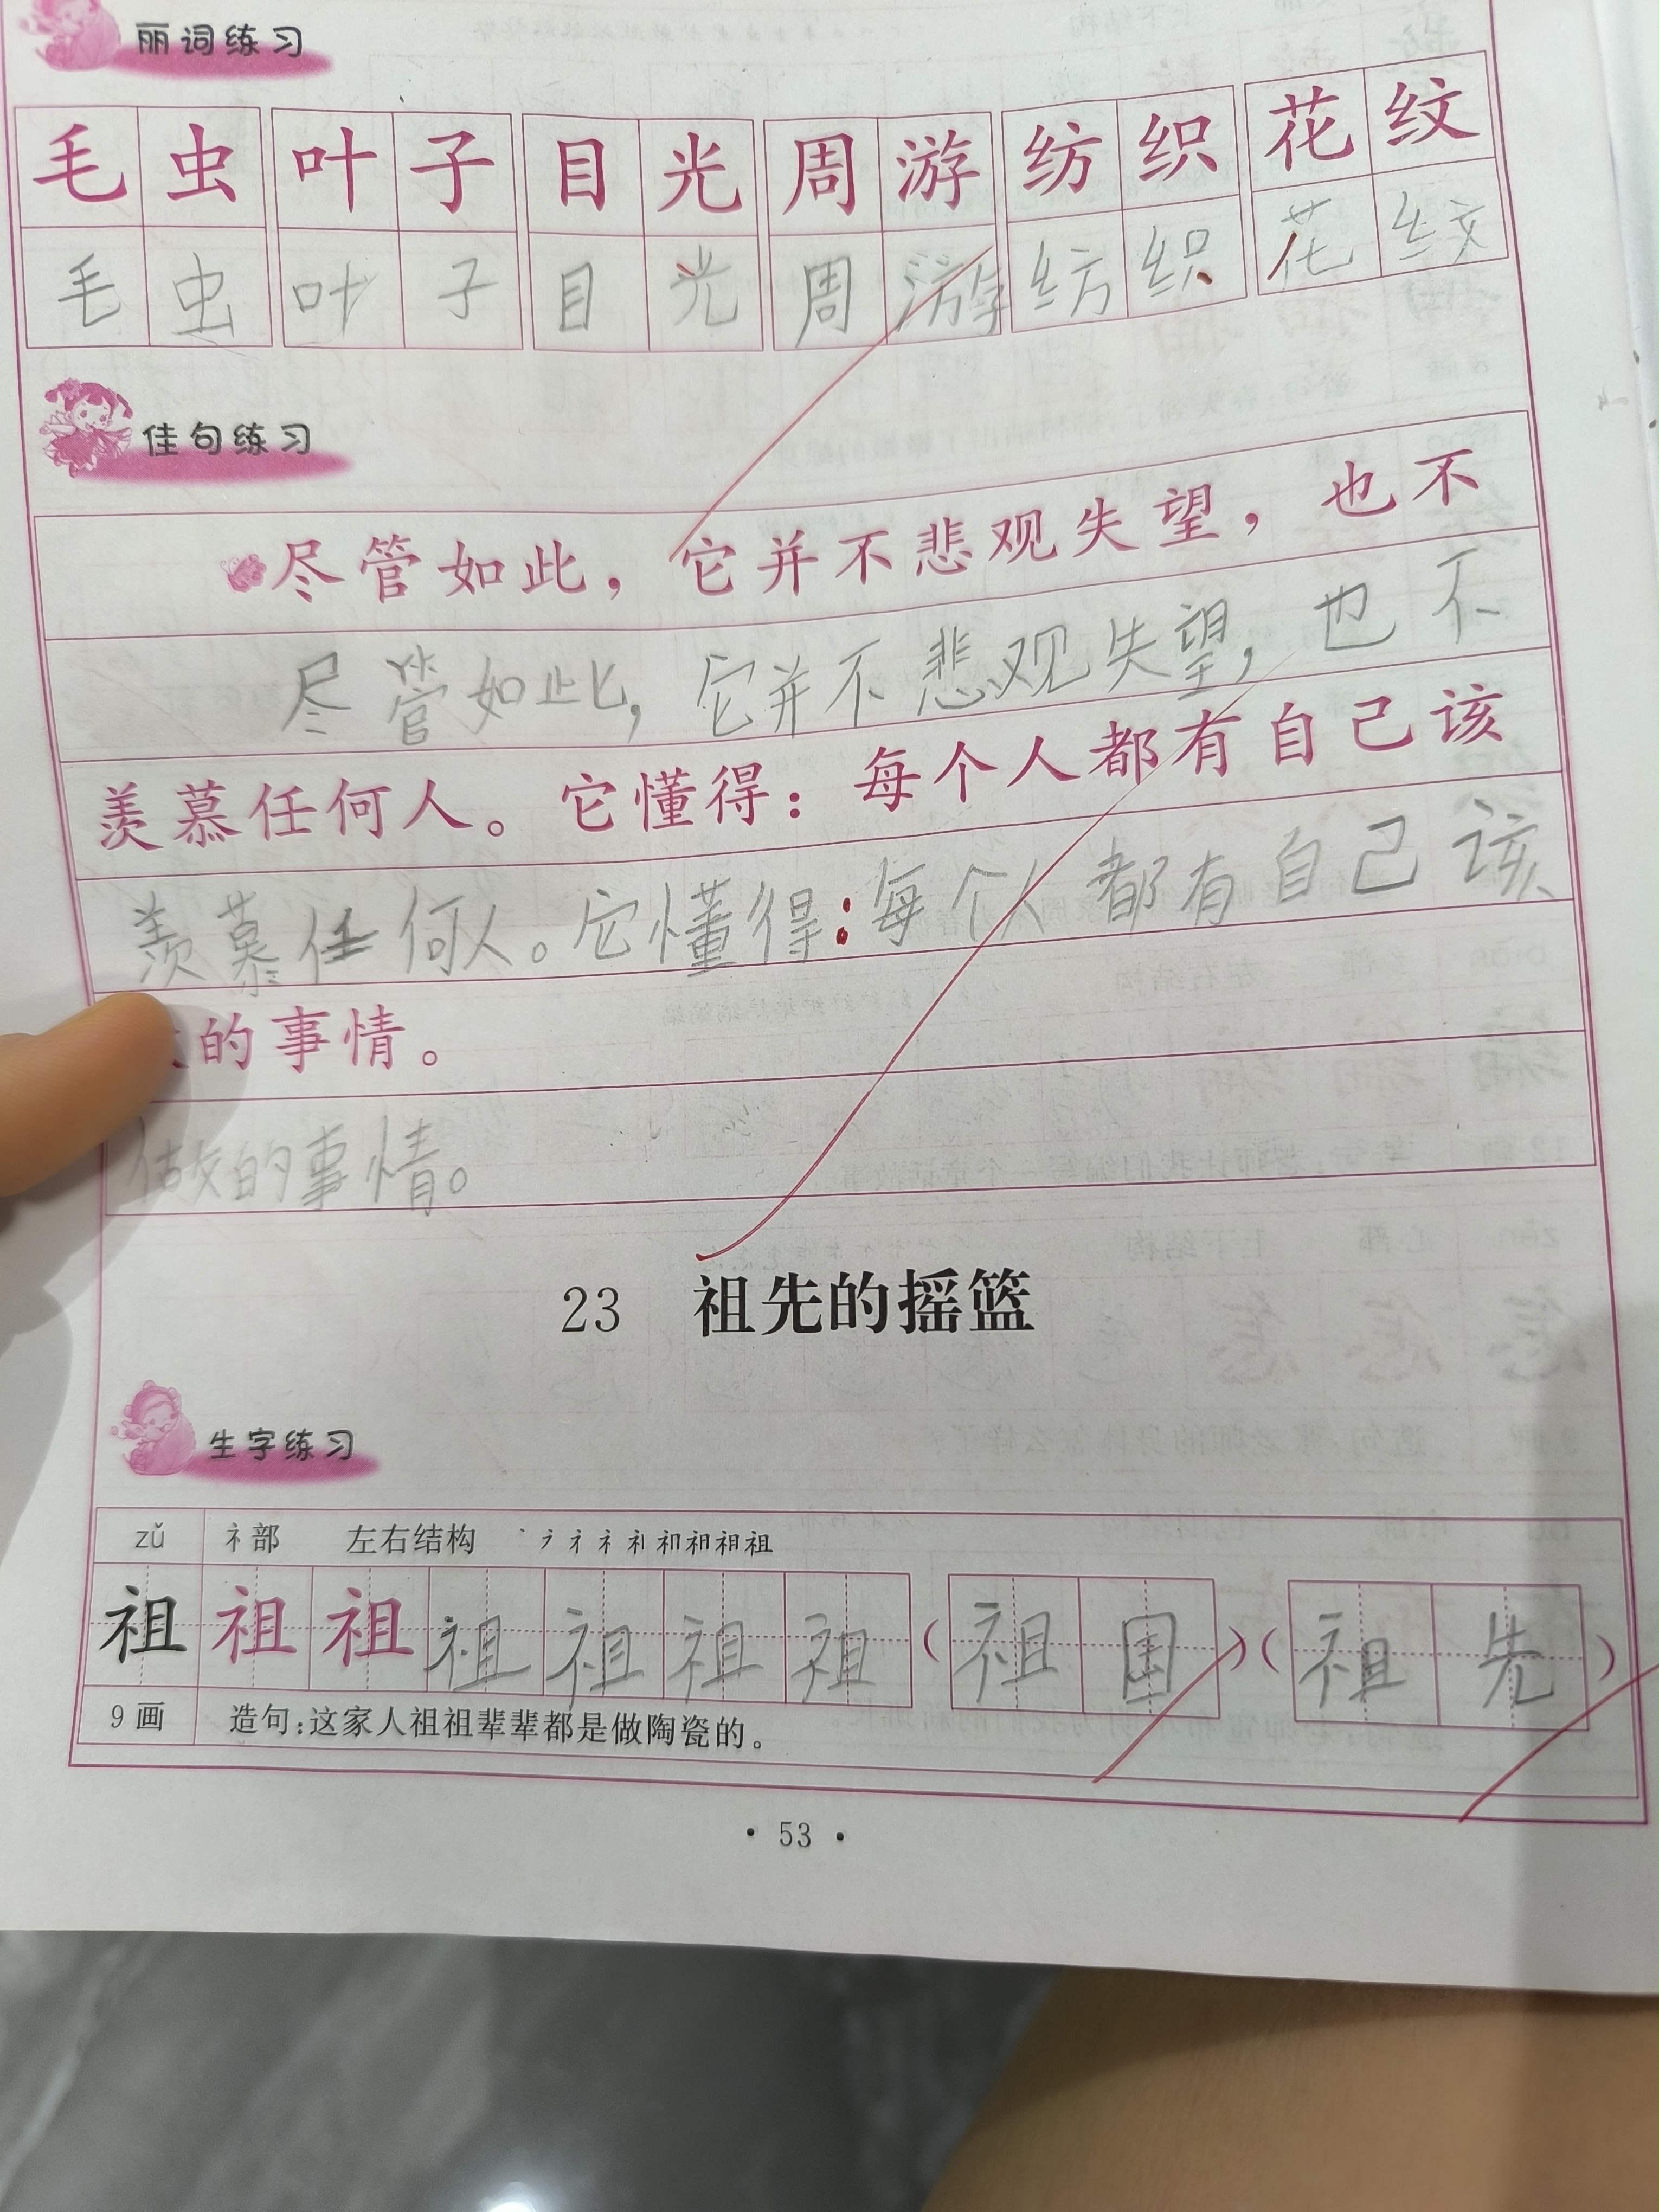 丽词练习
毛虫 叶子 目光 周游 纺织 花纹
毛虫 叶子 目光 周游 纺织 花纹
佳句练习
尽管如此，它并不悲观失望，也不
尽管如此，它并不悲观失望，也不
羡慕任何人。它懂得：每个人都有自己该
羡慕任何人。它懂得：每个人都有自己该
的事情。
做的事情。
23 祖先的摇篮
生字练习
zǔ 礻部 左右结构
祖 祖 祖 祖 祖 祖 祖 （祖国）（祖先）
9画 造句：这家人祖祖辈辈都是做陶瓷的。
· 53 ·